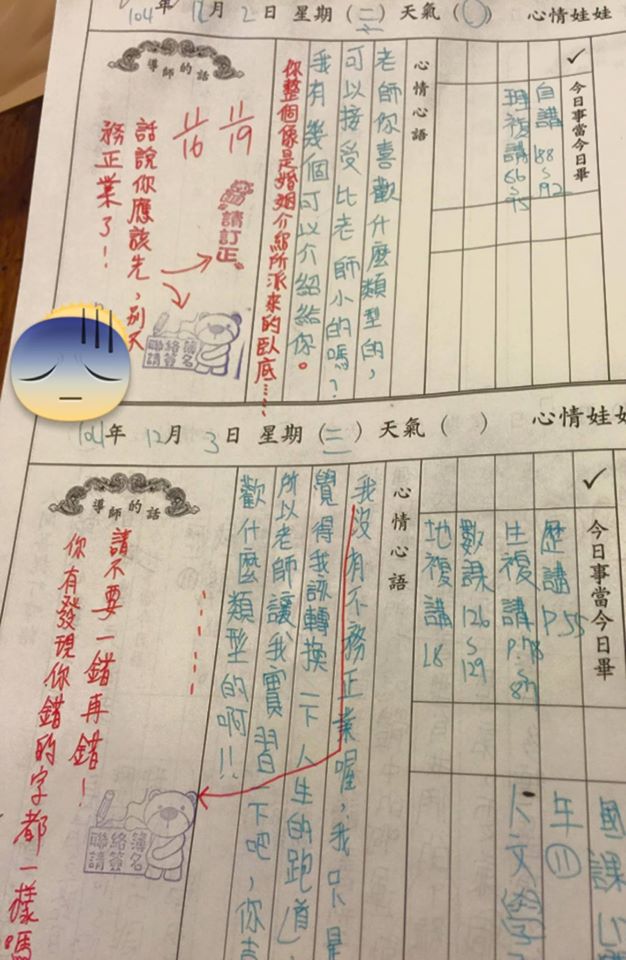 104年 12月 2日 星期(二) 天氣( ) 心情娃娃
✓ 今日事當今日畢
自講 88~92
理複講 66~95
心情心語
老師你喜歡什麼類型的,
可以接受比老師小的嗎?
我有幾個可以介紹給你。
你整個像是婚姻介紹所派來的臥底……
導師的話
11/19
11/16
請訂正
話說你應該先,別不
務正業了!
聯絡簿
請簽名
104年 12月 3日 星期(三) 天氣( ) 心情娃娃
✓ 今日事當今日畢
歷講 P.55
生複講 P.78~87
數課 126~129
地複講 L8
國課
年
人文學
心情心語
我沒有不務正業喔,我只是
覺得我該轉換一下人生的跑道,
所以老師讓我實習一下吧,你喜
歡什麼類型的啊!!
……
導師的話
請不要一錯再錯!
你有發現你錯的字都一樣嗎
聯絡簿
請簽名